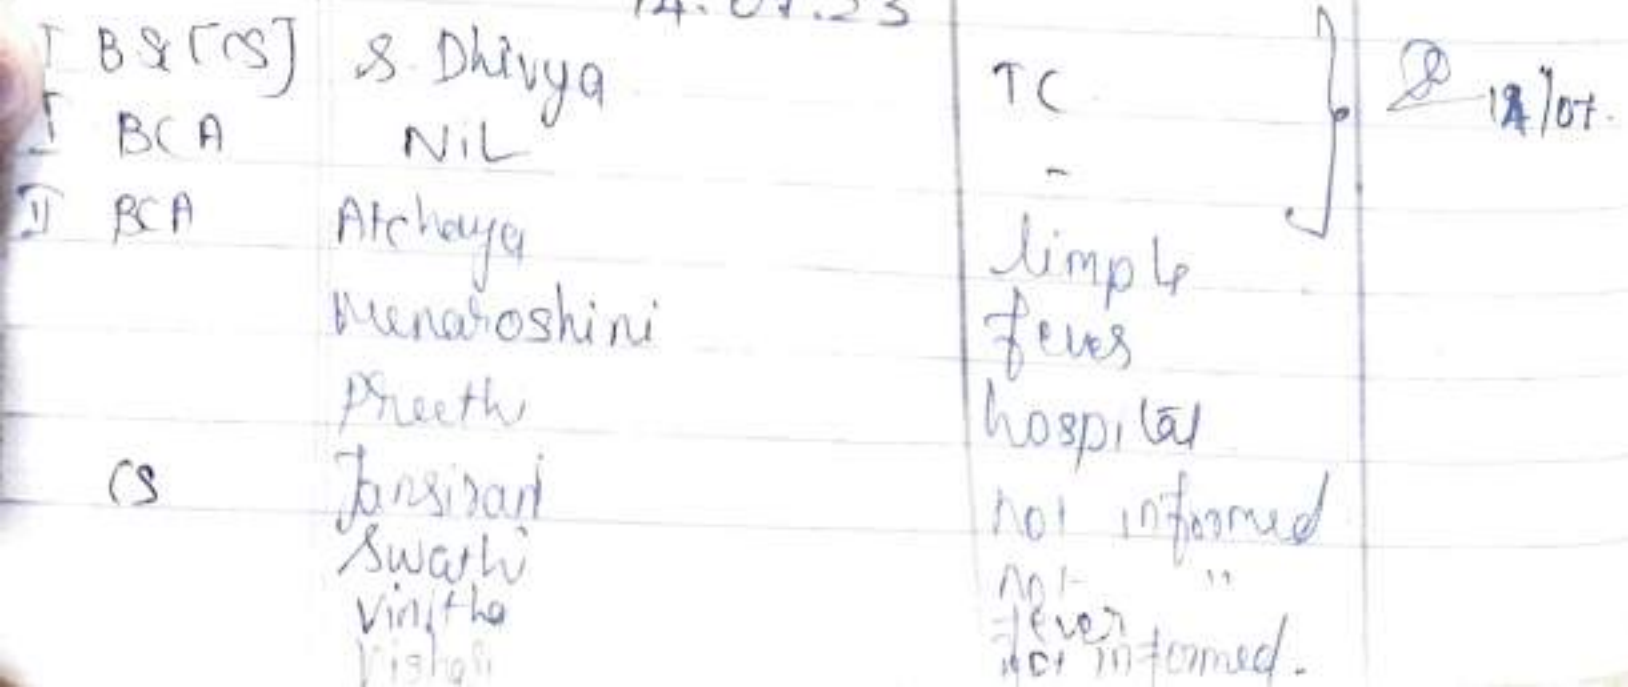 14.07.23
I BSc [CS] S. Dhivya TC
I BCA NiL -
II BCA Atchaya limple
Menaroshini fever
Preethi hospital
CS Jansirani not informed
Swathi not "
Vinitha fever
not informed.
14/07.